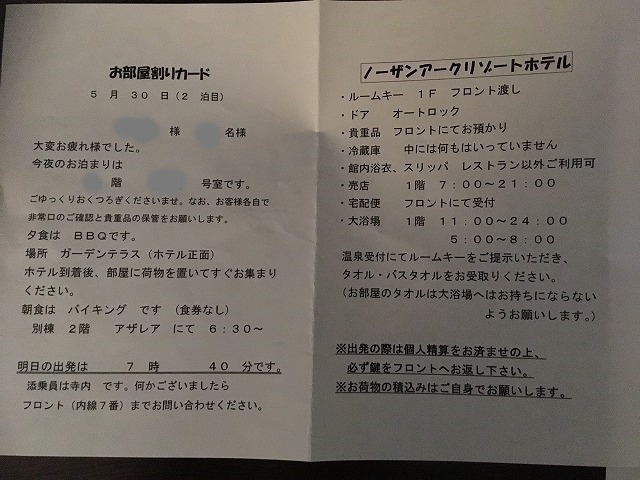 お部屋割りカード
５ 月 ３０ 日（２ 泊目）
様 名様
大変お疲れ様でした。
今夜のお泊まりは
階 号室です。
ごゆっくりおくつろぎくださいませ。なお、お客様各自で
非常口のご確認と貴重品の保管をお願いします。
夕食は ＢＢＱです。
場所 ガーデンテラス（ホテル正面）
ホテル到着後、部屋に荷物を置いてすぐお集まり
ください。
朝食は バイキング です （食券なし）
別棟 ２階 アザレア にて ６：３０～
明日の出発は ７ 時 ４０ 分です。
添乗員は寺内 です。何かございましたら
フロント（内線７番）までお問い合わせください。
ノーザンアークリゾートホテル
・ルームキー １Ｆ フロント渡し
・ドア オートロック
・貴重品 フロントにてお預かり
・冷蔵庫 中には何もはいっていません
・館内浴衣、スリッパ レストラン以外ご利用可
・売店 １階 ７：００～２１：００
・宅配便 フロントにて受付
・大浴場 １階 １１：００～２４：００
５：００～８：００
温泉受付にてルームキーをご提示いただき、
タオル・バスタオルをお受取りください。
（お部屋のタオルは大浴場へはお持ちにならない
ようお願いします。）
※出発の際は個人精算をお済ませの上、
必ず鍵をフロントへお返し下さい。
※お荷物の積込みはご自身でお願いします。